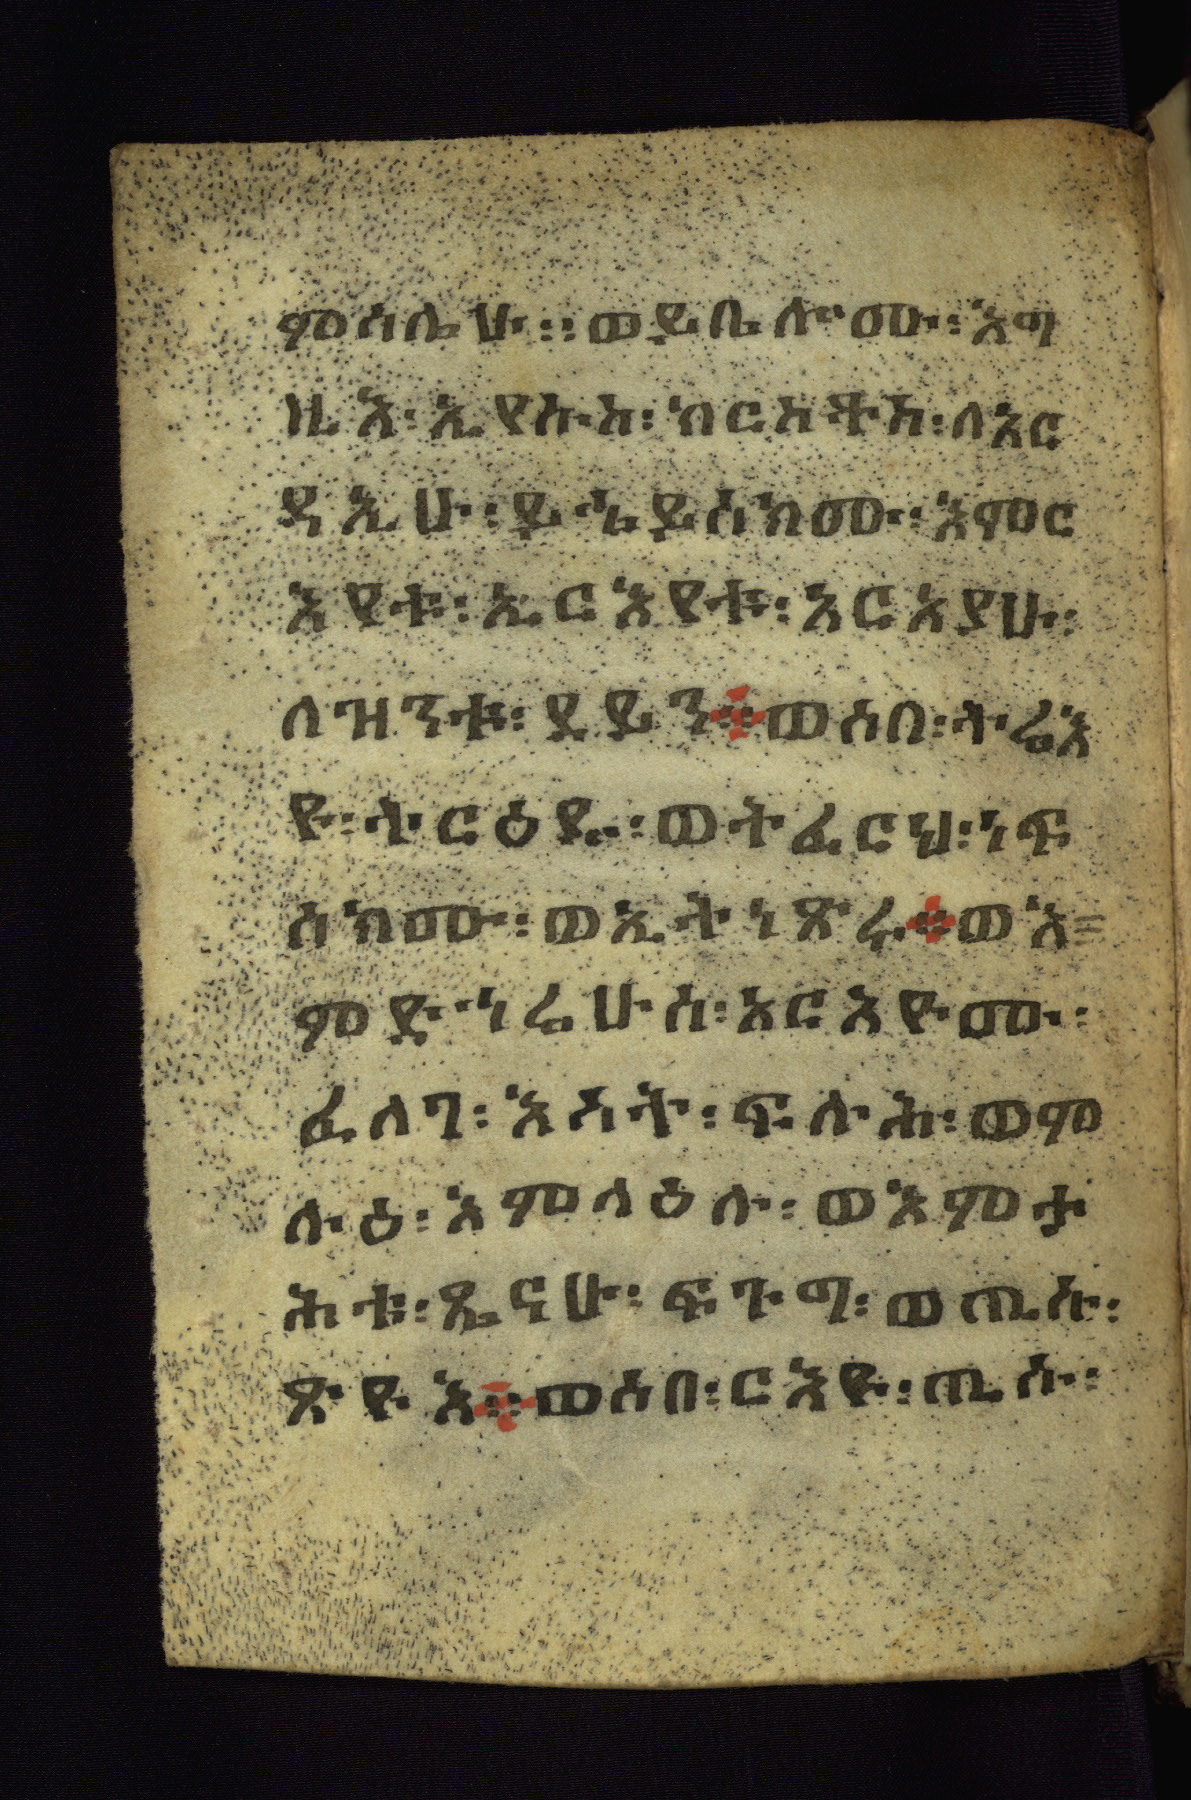 ምስሌሁ፡፡ ወይቤሎሙ፡ እግ
ዚእ፡ ኢየሱስ፡ ክርስቶስ፡ ለአር
ዳኢሁ፡ ይኄይስክሙ፡ እምር
እየቱ፡ ኢርእየቱ፡ አርአያሁ፡
ለዝንቱ፡ ደይን። ወሶበ፡ ትሬእ
ዮ፡ ትርዕዱ፡ ወትፈርህ፡ ነፍ
ስክሙ፡ ወኢትነጽሩ። ወእ=
ምድኅሬሁስ፡ አርአዮሙ፡
ፈለገ፡ እሳት፡ ፍሉሕ፡ ወም
ሉዕ፡ እምላዕሉ፡ ወእምታ
ሕቱ፡ ጼናሁ፡ ፍጉግ፡ ወጢሱ፡
ጽዩእ። ወሶበ፡ ርእዩ፡ ጢሱ፡